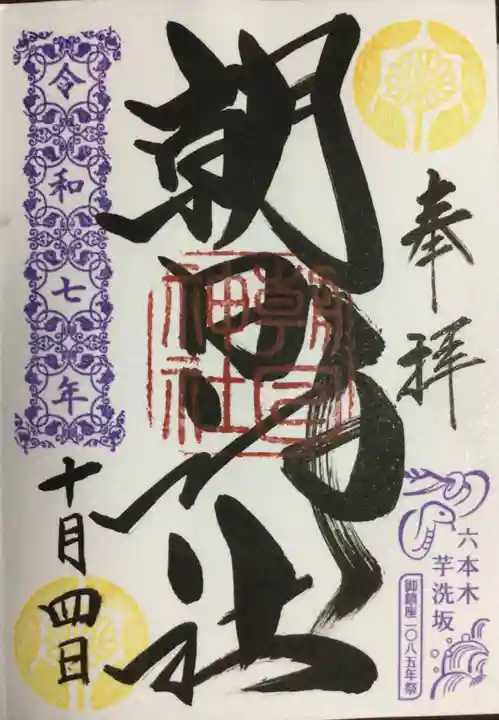 奉拝
朝日神社
朝日
神社
令和七年
十月四日
六本木
芋洗坂
御鎮座一〇八五年祭